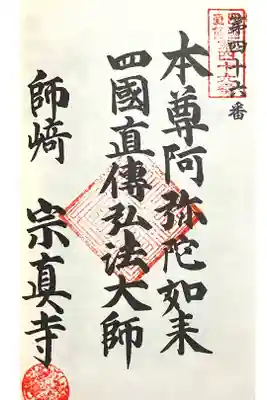 第四十六番
本尊阿弥陀如来
四國直傳弘法大師
師﨑 宗真寺